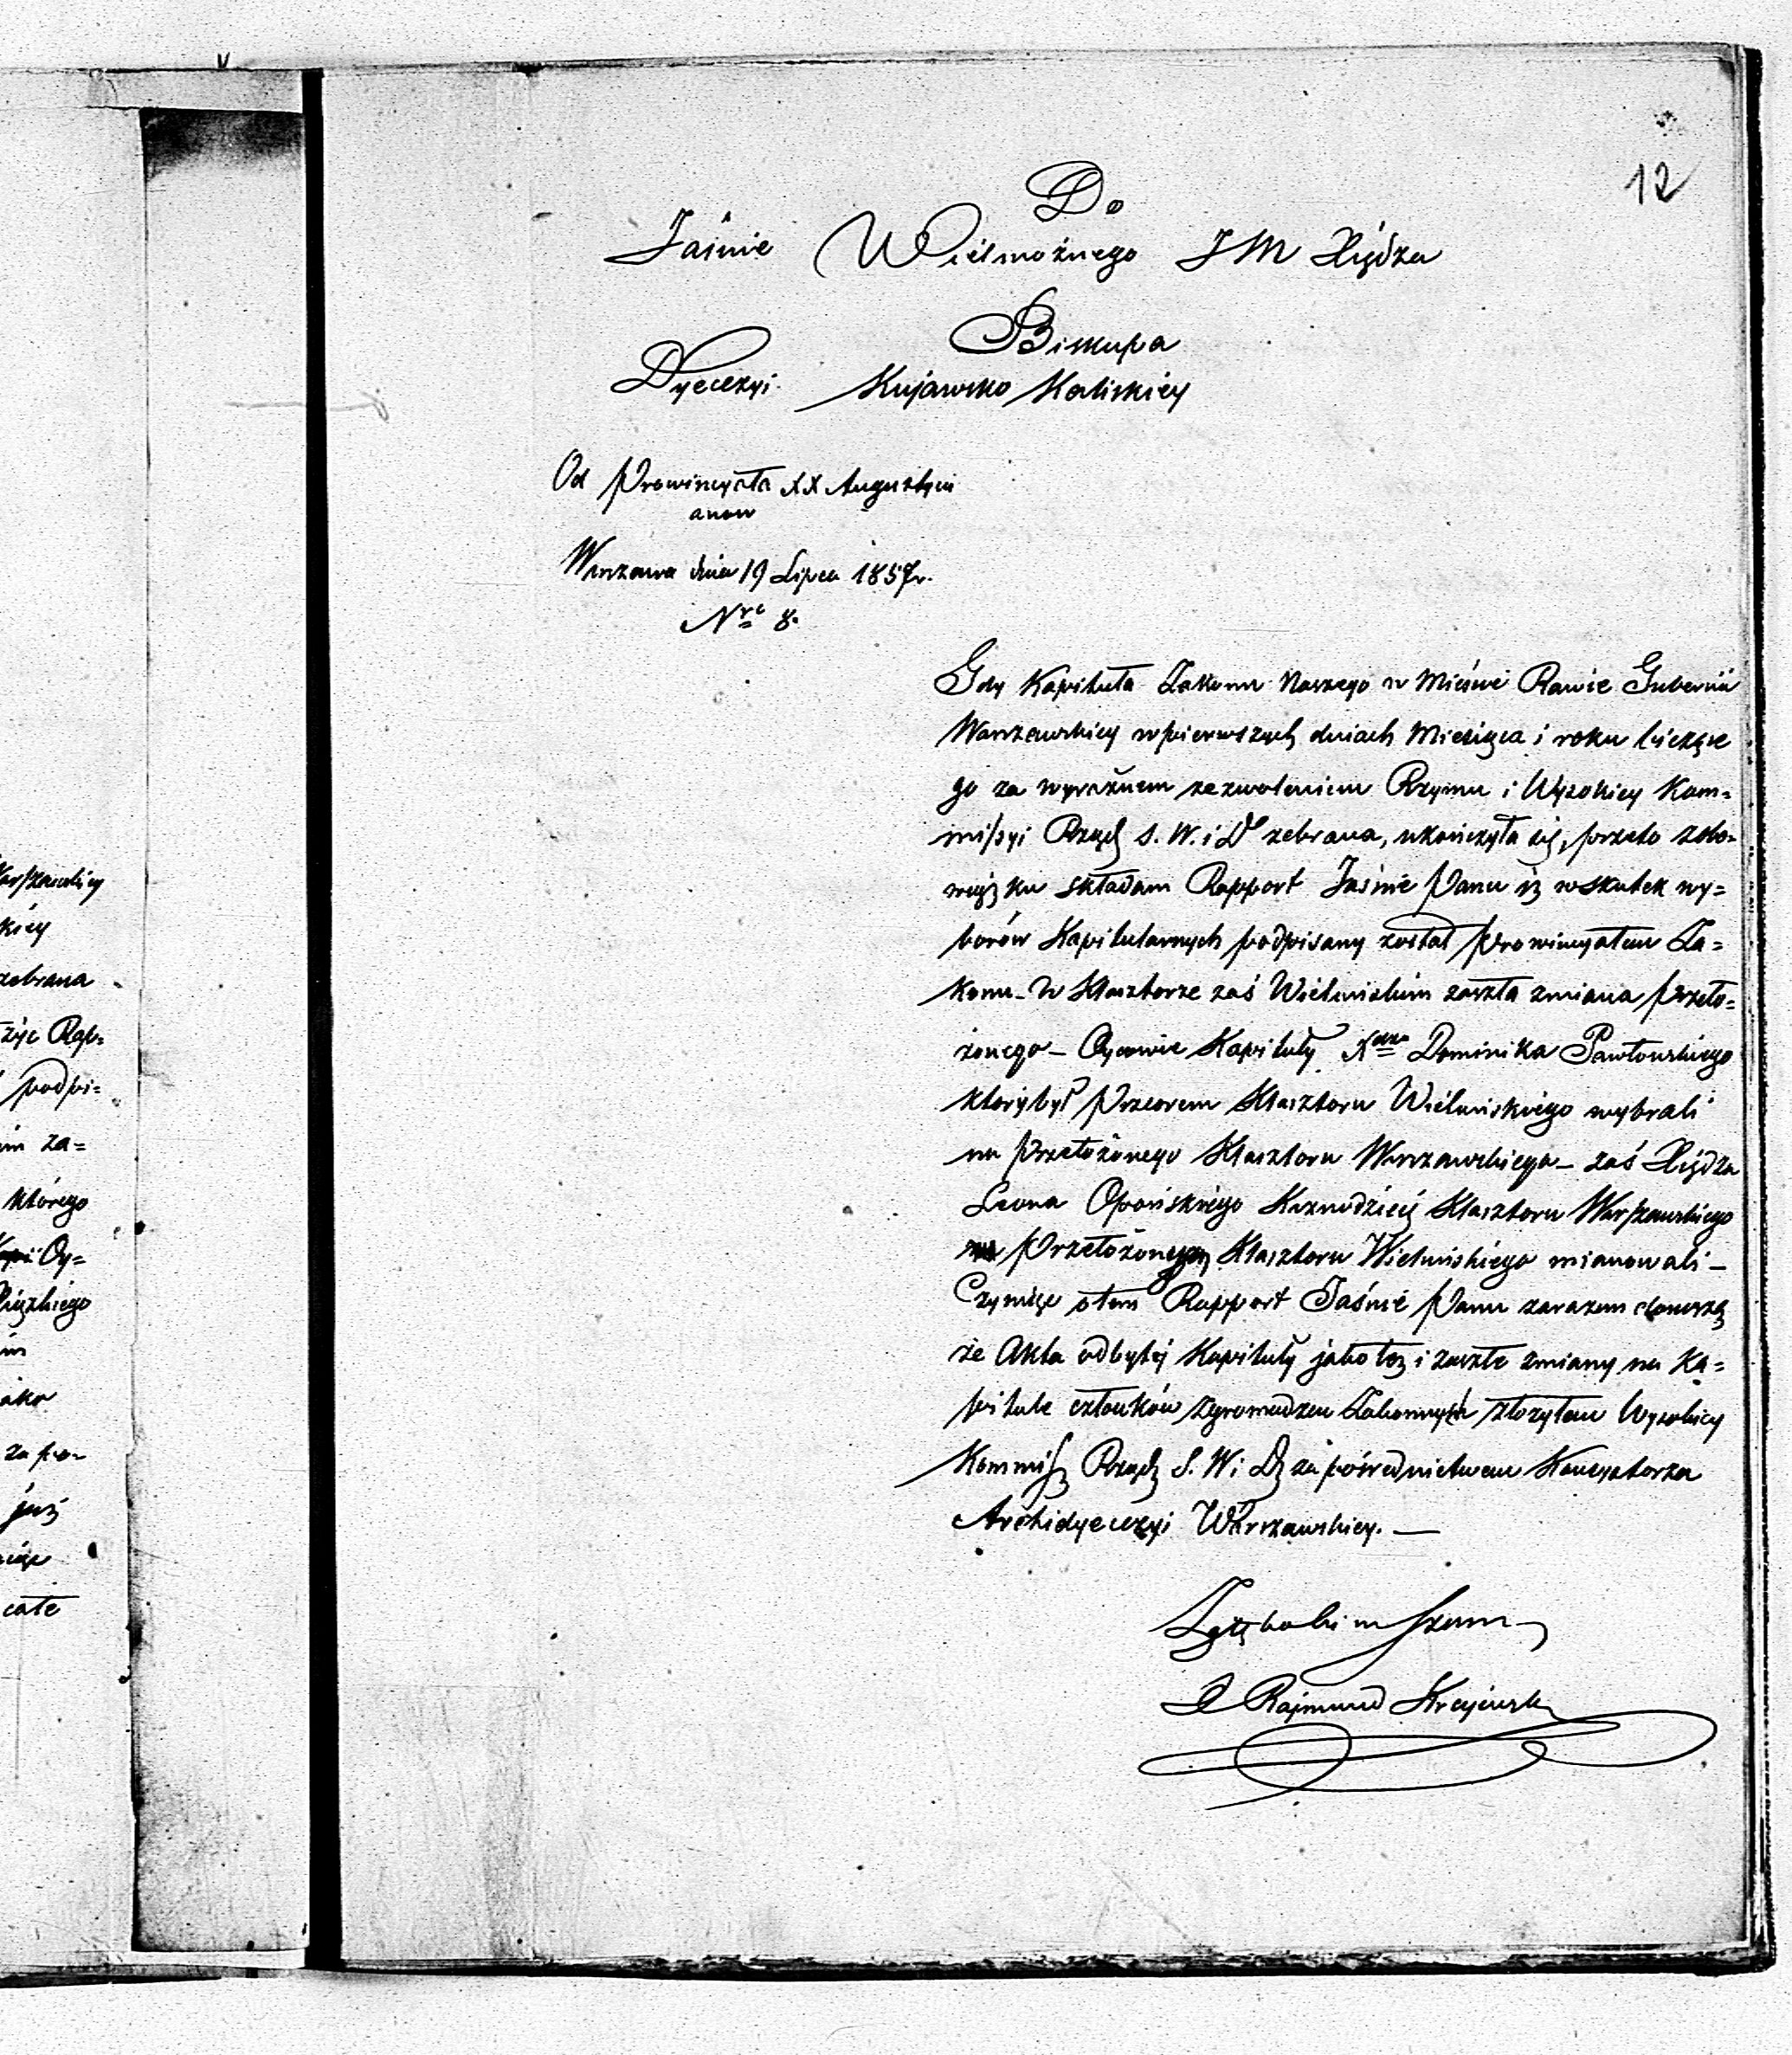 12
Do
Jaśnie Wielmożnego JM Xiędza
Biskupa
Dyecezyi Kujawsko Kaliskiey
Od Prowincyała XX Augustyni
anow
Warszawa dnia 19 Lipca 1857r.
Nro 8.
Gdy Kapituła Zakonu Naszego w Mieście Rawie Gubernii
Warszawskiey w pierwszych dniach Miesiąca i roku bieżące
go za wyraźnem zezwoleniem Rzymu i Wysokiey Kom=
missyi Rządź S. W. i D. zebrana, ukończyła się, przeto z obo=
wiązku składam Rapport Jaśnie Panu iż w skutek wy=
borów Kapitularnych podpisany został Prowincyałem Za=
konu – W Klasztorze zaś Wieluńskim zaszła zmiana Przeło=
żonego – Oycowie Kapituły Xdza Dominika Pawłowskiego
który był Przeorem Klasztoru Wieluńskiego wybrali
na Przełożonego Klasztoru Warszawskiego – zaś Xiędza
Leona Opońskiego Kaznodzieię Klasztoru Warszawskiego
Przełożonym Klasztoru Wieluńskiego mianowali –
Czyniąc o tem Rapport Jaśnie Panu zarazem donoszę
że Akta odbytéj Kapituły jako też i zaszłe zmiany na Ka=
pitule członków Zgromadzeń Zakonnych złożyłem Wysokiey
Kommiss Rządź S. W. i D. za pośrednictwem Konsystorza
Archidyecezyi Warszawskiey. –
Rajmund Krajewski
Warszawskiey
kiey
zebrana
Rap=
podpi=
im za=
którego
Oy=
im
jako
za po=
już
całe